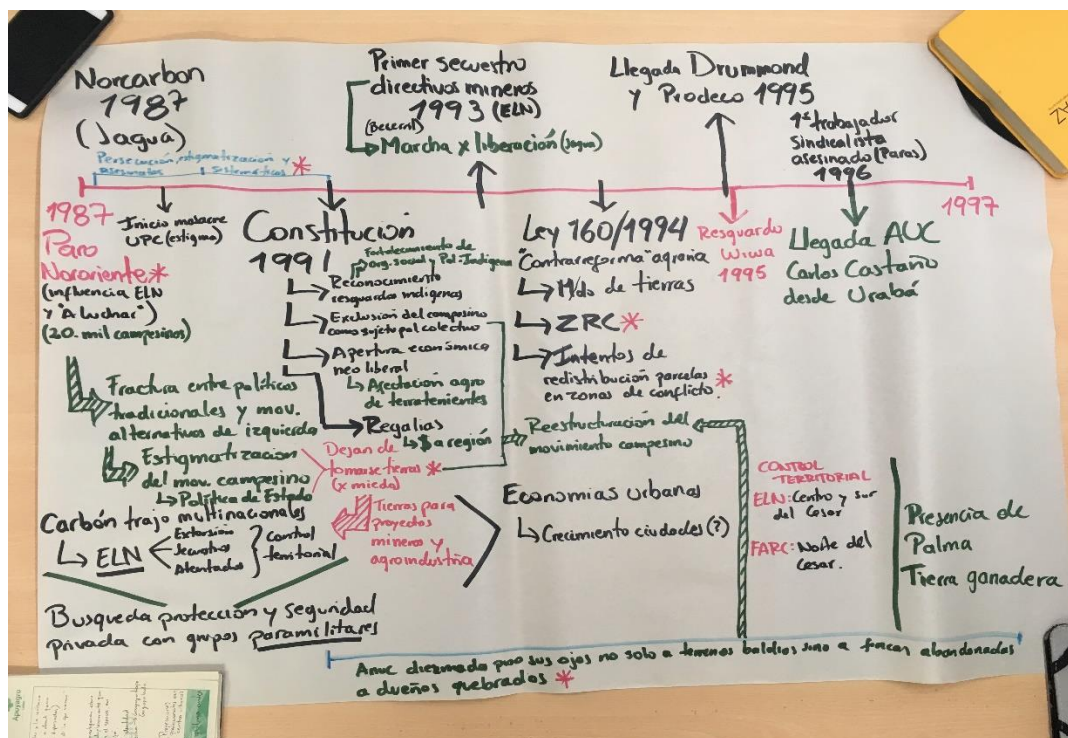 Norcarbon
1987
(Jagua)
Persecución, estigmatización y
asesinatos sistemáticos *
Primer secuestro
directivos mineros
1993 (ELN)
(Becerril)
Marcha x liberación (Jagua)
Llegada Drummond
y Prodeco 1995
1er trabajador
Sindicalista
asesinado (Paras)
1996
1987
Paro
Nororiente *
(influencia ELN
y "A luchar")
(20. mil campesinos)
Inicio masacre
UPC (estigma)
Constitución
1991
Fortalecimiento de
org. social y Pol. Indígena
Reconocimiento
resguardo indígenas
Exclusión del campesino
como sujeto pol colectivo
Apertura económica
neo liberal
Afectación agro
de terratenientes
Regalías
$ a región
Ley 160/1994
"Contrarreforma" agraria
M/do de tierras
ZRC *
Intentos de
redistribución parcelas
en zonas de conflicto. *
Resguardo
Wiwa
1995
Llegada AUC
Carlos Castaño
desde Urabá
1997
Fractura entre políticos
tradicionales y mov.
alternativos de izquierda
Estigmatización
del mov. campesino
Política de Estado
Dejan de
tomarse tierras *
(x miedo)
Reestructuración del
movimiento campesino
Carbón trajo multinacionales
ELN
Extorsión
Secuestros
Atentados
Control
territorial
Tierras para
proyectos
mineros y
agroindustria
Economías urbanas
Crecimiento ciudades (?)
CONTROL
TERRITORIAL
ELN: Centro y sur
del Cesar
FARC: Norte del
Cesar.
Presencia de
Palma
Tierra ganadera
Busqueda protección y seguridad
privada con grupos paramilitares
Anuc diezmada puso sus ojos no solo a terrenos baldíos sino a fincas abandonadas
a dueños quebrados *